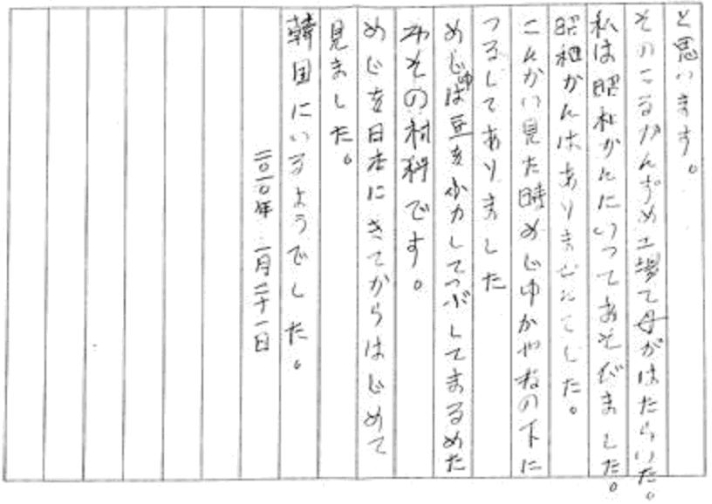 と思います。
そのころかんずめ工場で母がはたらいた。
私は昭和かんにいってあそびました。
昭和かんはありませんでした。
こんかい見た時めじゅかやねの下に
つるしてありました
めじゅは豆を小カしてつぶしてまるめた
みその材料です。
めじを日本にきてからはじめて
見ました。
韓国にいるようでした。
二〇一〇年 一月二十一日